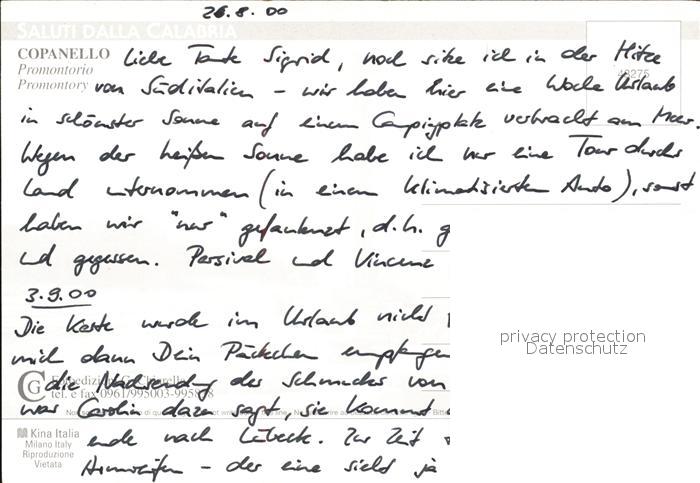 26.8.00
SALUTI DALLA CALABRIA
COPANELLO
Promontorio
Promontory
48275
Liebe Tante Sigrid, noch sitze ich in der Hitze
von Süditalien – wir haben hier eine Woche Urlaub
in schönster Sonne auf einem Campingplatz verbracht am Meer.
Wegen der heißen Sonne habe ich nur eine Tour durchs
Land unternommen (in einem klimatisierten Auto), sonst
haben wir "nur" gefaulenzt, d.h. g
und gegessen. Persival und Vincenz
3.9.00
Die Karte wurde im Urlaub nicht
mich dann Dein Päckchen empfangen
die Nachsendung des Schmuckes von
tel. e fax 0961/995003-995838
was Carolin dazu sagt, sie kommt
ende nach Lübeck. Zur Zeit
Armreifen – der eine sieht ja
Kina Italia
Milano Italy
Riproduzione
Vietata
privacy protection
Datenschutz